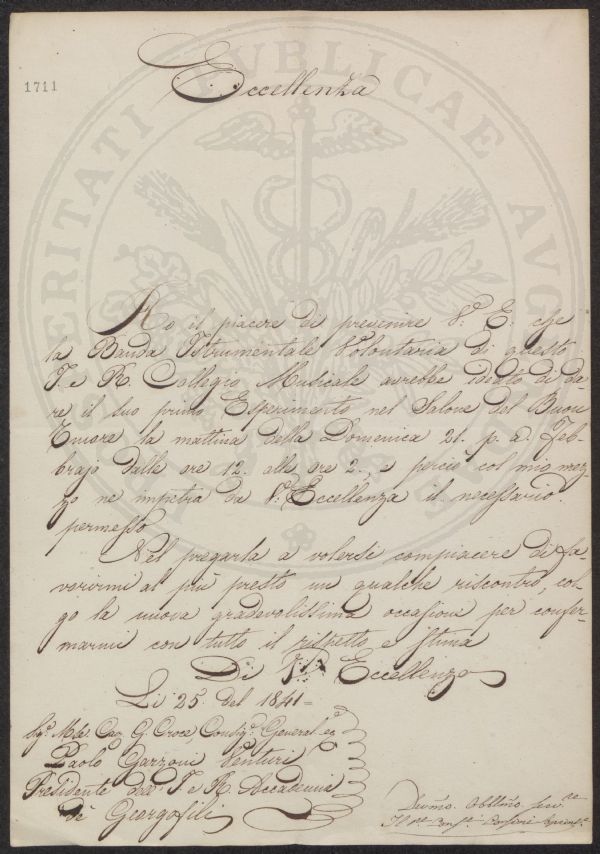 1711
Eccellenza
Ho il piacere di prevenire V.ª E. che
la Banda Istrumentale Volontaria di questo
I. e R. Collegio Musicale avrebbe ideato di da-
re il suo primo Esperimento nel Salone del Buon
Umore la mattina della Domenica 21. p. a. Feb-
brajo dalle ore 12. alle ore 2., e perciò col mio mez-
zo ne impetra da V.ª Eccellenza il necessario
permesso.
Nel pregarla a volersi compiacere di fa-
vorirmi al più presto un qualche riscontro, col-
go la nuova gradevolissima occasione per confer-
marmi con tutto il rispetto e stima
Di V.ª Eccellenza
Li 25. del 1841=
Sig.r M.se Cav. G. Croce, Consig.r General
Paolo Garzoni Venturi
Presidente dell' I. e R. Accademia
de' Georgofili
Devmo. Obblmo